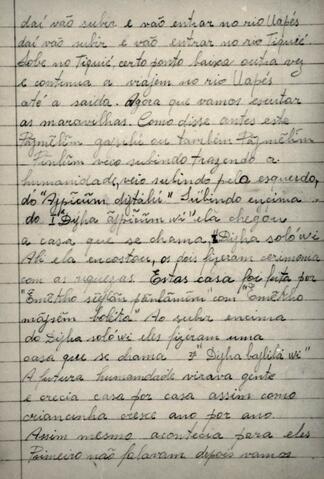 daí vão subir e vão entrar no rio Uapés
daí vão subir e vão entrar no rio Tiquié.
Sobe no Tiquié, certo ponto baixa outra vez
e continua a viajem no rio Uapés
até a saída. Agora que vamos escutar
as maravilhas. Como disse antes este
também
veio subindo trazendo a
humanidade, veio subindo pela esquerda,
do Subindo encima
do Diɟha wi" ela chegou
a casa que se chama, soló wi
Ali ela encostou, os dois fizeram cerimonia
com as riquesas. Estas casa foi feita por
"Emëkho pẽnlãmĩn com "Emëkho
bokita" Ao subir encima
do soló wi eles fizeram uma
casa que se chama wi"
A futura humanidade virava gente
e crecia casa por casa assim como
criancinha cresce ano por ano.
Assim mesmo acontecia para eles
Primeiro não falavam depois vamos